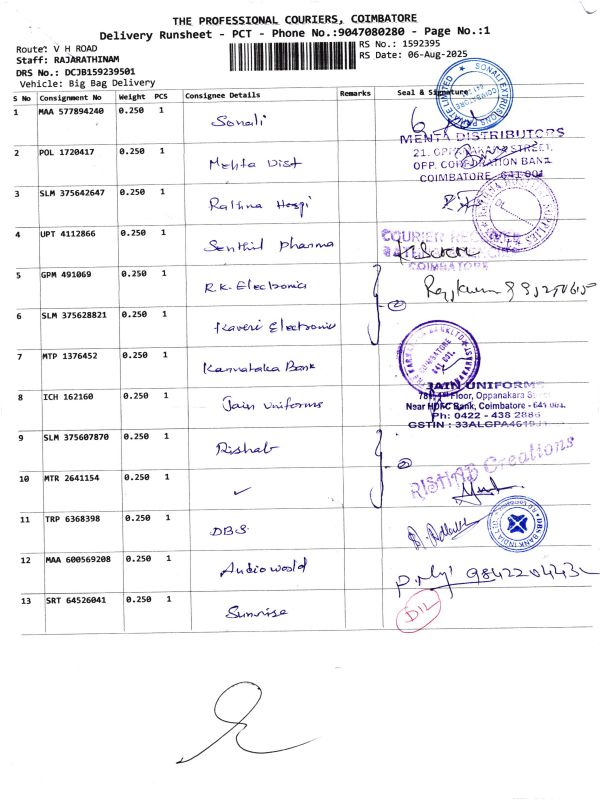 THE PROFESSIONAL COURIERS, COIMBATORE
Delivery Runsheet - PCT - Phone No.:9047080280 - Page No.:1
Route: V H ROAD
RS No.: 1592395
Staff: RAJARATHINAM
RS Date: 06-Aug-2025
DRS No.: DCJB159239501
Vehicle: Big Bag Delivery
S No Consignment No Weight PCS Consignee Details Remarks Seal & Signature
1 MAA 577894240 0.250 1 Sonali
SONALI EXTRUSIONS PRIVATE LIMITED
COIMBATORE
2 POL 1720417 0.250 1 Mehta Dist
MEHTA DISTRIBUTORS
21, OPPANAKARA STREET,
OPP. CORPORATION BANK
COIMBATORE - 641 001
3 SLM 375642647 0.250 1 Rathna Hospi
4 UPT 4112866 0.250 1 Senthil Pharma
COURIER
COIMBATORE
5 GPM 491069 0.250 1 R.K. Electronics
2
6 SLM 375628821 0.250 1 Kaveri Electronics
7 MTP 1376452 0.250 1 Karnataka Bank
COIMBATORE
641 001.
8 ICH 162160 0.250 1 Jain Uniforms
JAIN UNIFORMS
1st Floor, Oppanakara
Near HDFC Bank, Coimbatore - 641 001.
Ph: 0422 - 438 2886
GSTIN : 33ALGPA4619
9 SLM 375607870 0.250 1 Rishab
2
RISHAB Creations
10 MTR 2641154 0.250 1 ✓
11 TRP 6368398 0.250 1 DBS
DBS BANK INDIA LTD
12 MAA 600569208 0.250 1 Audio world
9842204432
13 SRT 64526041 0.250 1 Sunrise
D/L